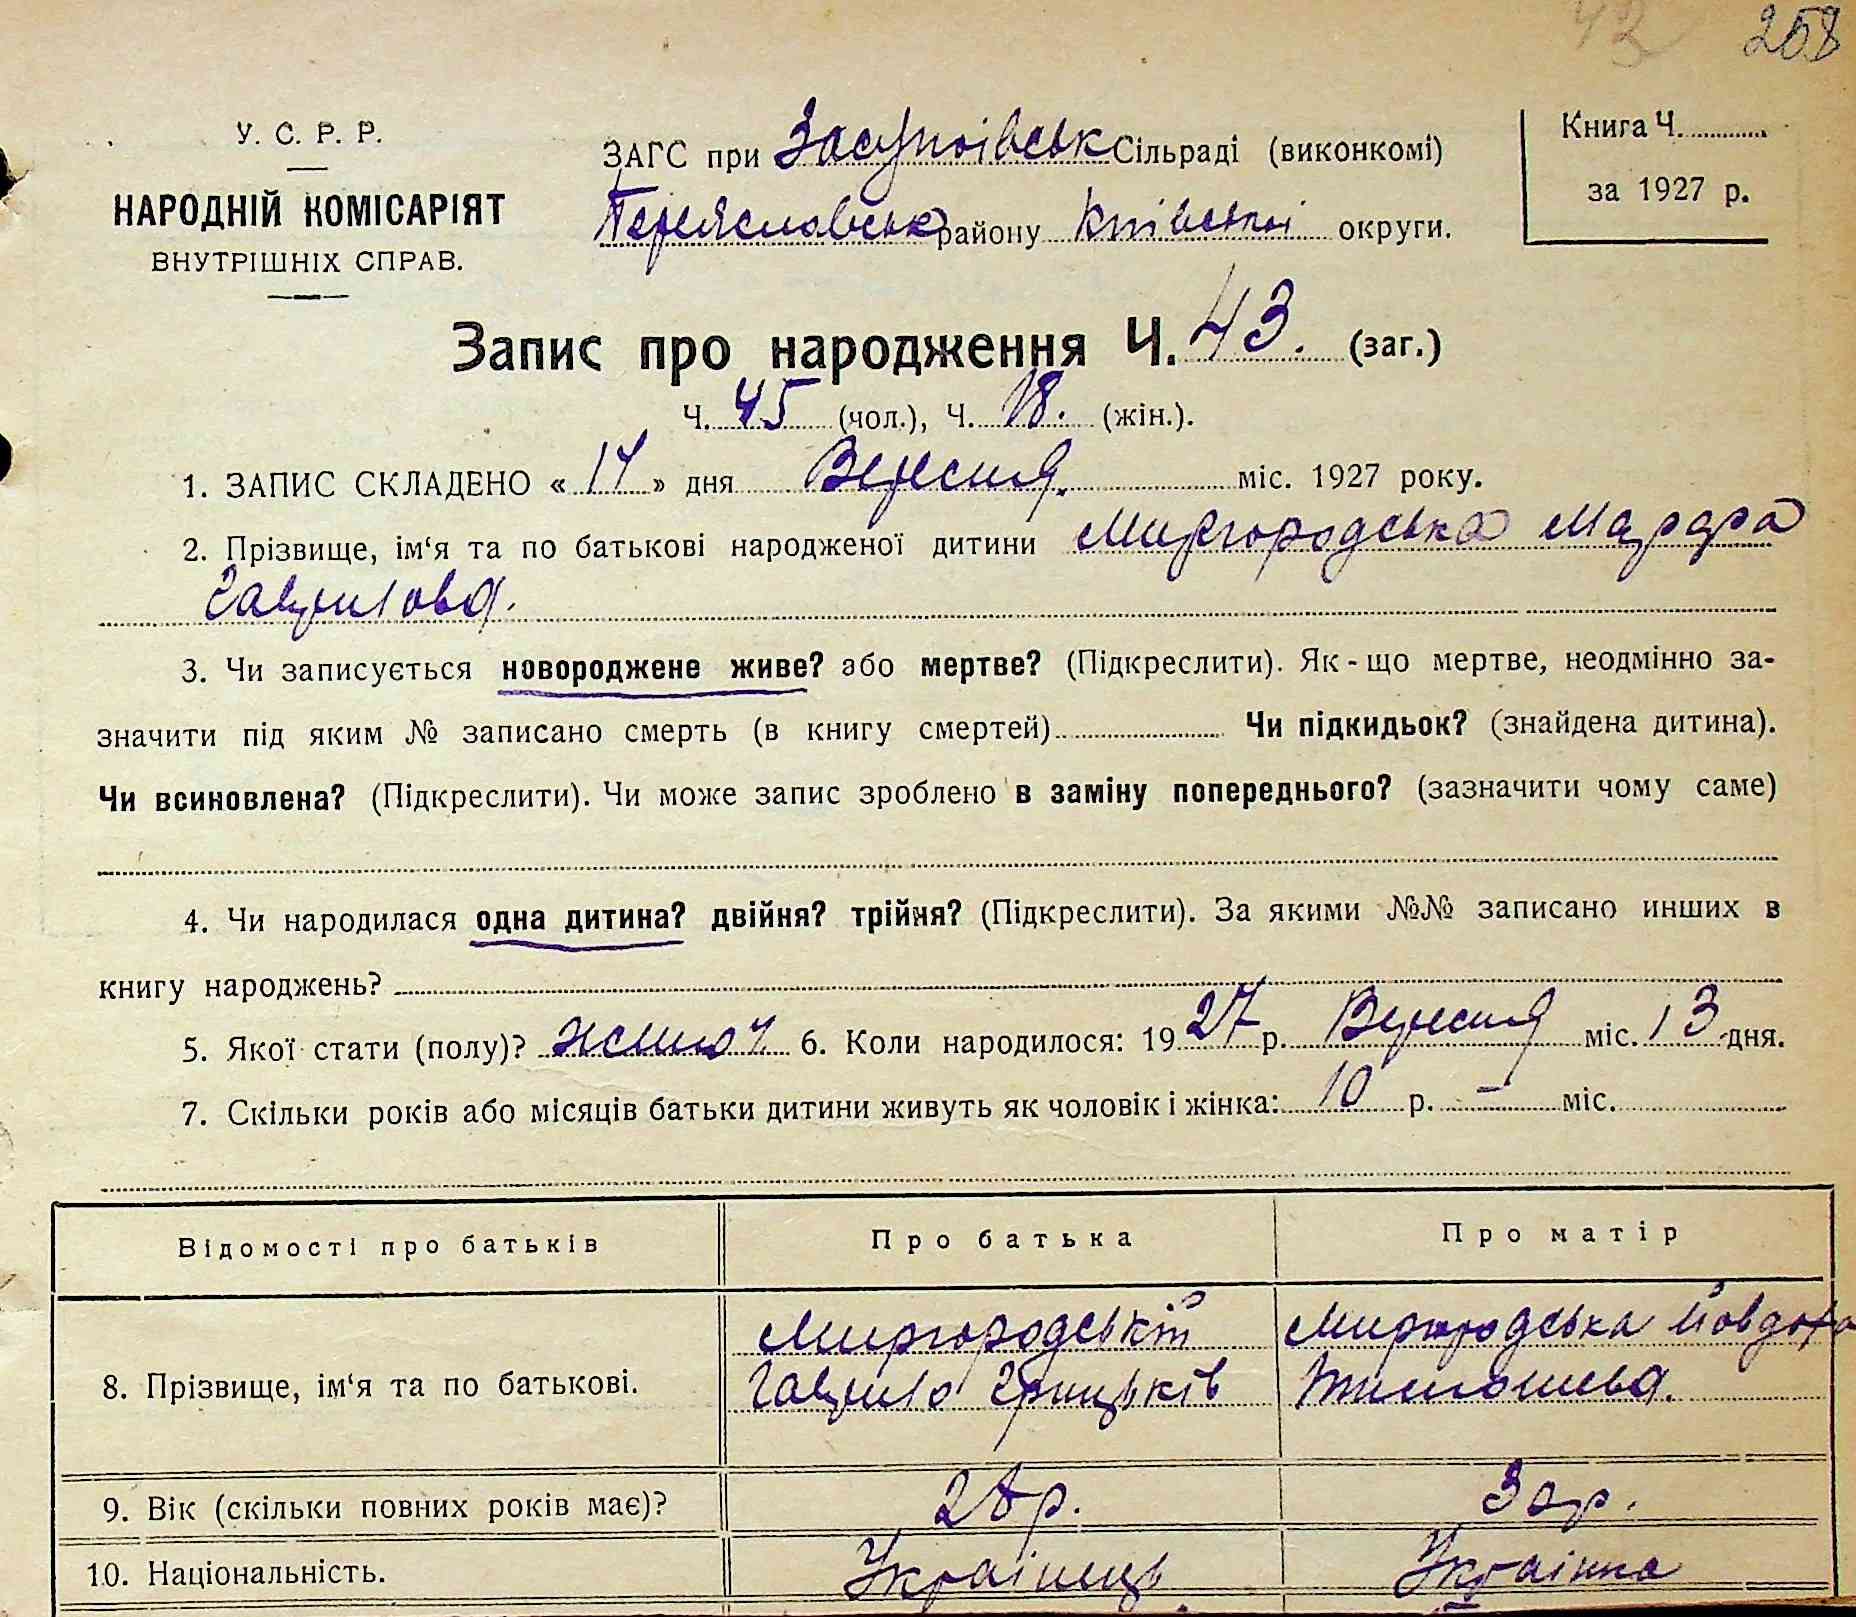 42 258
У. С. Р. Р.
НАРОДНІЙ КОМІСАРІЯТ
ВНУТРІШНІХ СПРАВ.
ЗАГС при Засупоівськ Сільраді (виконкомі)
Переяславськ району Київської округи.
Книга Ч.
за 1927 р.
Запис про народження Ч. 43. (заг.)
Ч. 45 (чол.), Ч. 18. (жін.).
1. ЗАПИС СКЛАДЕНО « 17 » дня Вересня. міс. 1927 року.
2. Прізвище, ім‘я та по батькові народженої дитини Миргородська
Гаврилова.
3. Чи записується новороджене живе? або мертве? (Підкреслити). Як - що мертве, неодмінно за-
значити під яким № записано смерть (в книгу смертей) Чи підкидьок? (знайдена дитина).
Чи всиновлена? (Підкреслити). Чи може запис зроблено в заміну попереднього? (зазначити чому саме)
4. Чи народилася одна дитина? двійня? трійня? (Підкреслити). За якими №№ записано инших в
книгу народжень?
5. Якої стати (полу)? жіноч. 6. Коли народилося: 1927 р. Вересня міс. 13 дня.
7. Скільки років або місяців батьки дитини живуть як чоловік і жінка: 10 р. – міс.
Відомості про батьків Про батька Про матір
Миргородській Миргородська Йовдоха
8. Прізвище, ім‘я та по батькові. Гаврило Грицьків Тимошева.
9. Вік (скільки повних років має)? 28 р. 30 р.
10. Національність. Українець Українка